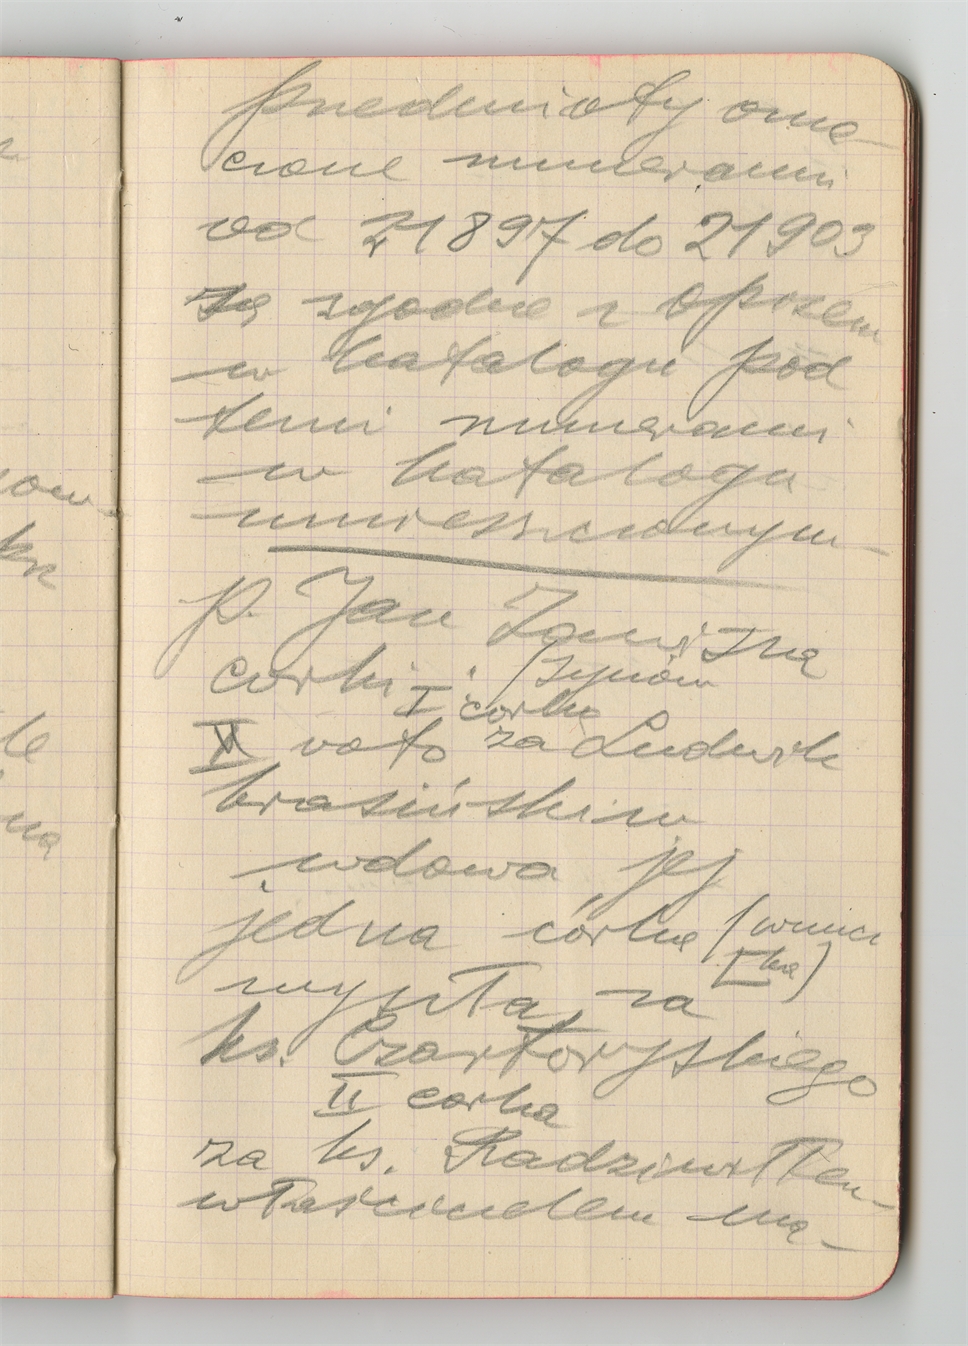 przedmioty ozna-
czone numerami
od 21897 do 21903
są zgodne z opisem
w katalogu pod
temi numerami
w katalogu
umieszczonym-
P. Jan Zawisza
corki: (synów
I corka
II voto za Ludwik
krasińskim
wdowa jej
jedna córka (wnucz
ka)
wyszła za
ks. Czartoryskiego
II corka
za ks. Radziwiłłem
właścicielem ma-
ow
ksz
le
ną